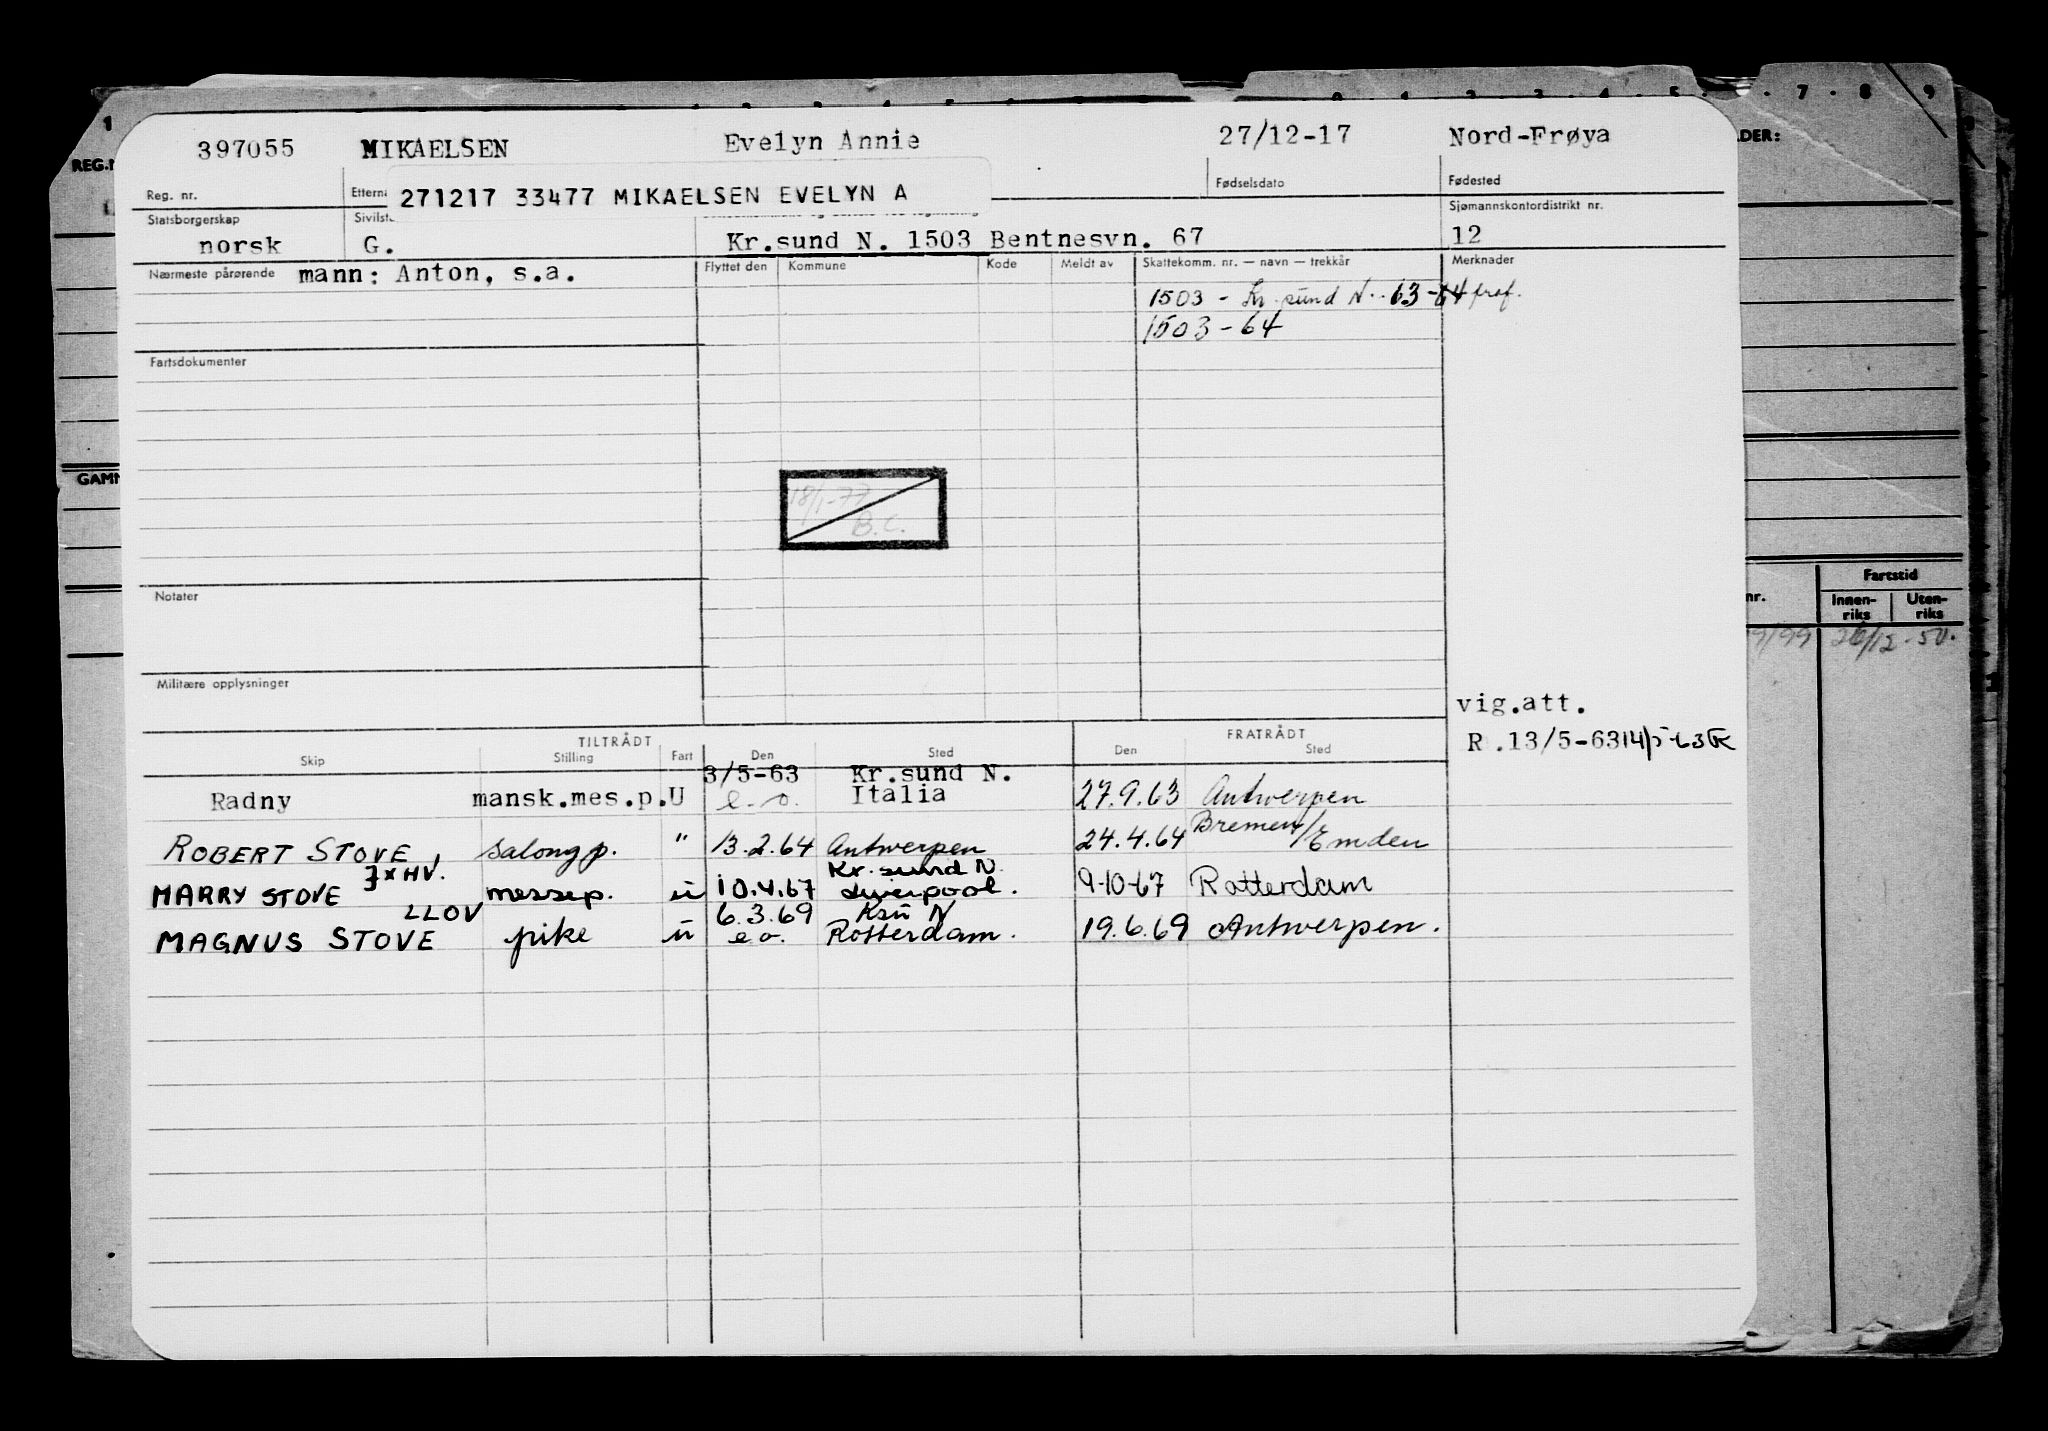 1 2 3 4 5 6 7 8 9 0 1 2 3 4 5 7 8 9
REG.N DER:
397055 MIKAELSEN Evelyn Annie 27/12-17 Nord-Frøya
Reg. nr. Ettern Fødselsdato Fødested
271217 33477 MIKAELSEN EVELYN A
Statsborgerskap Sivilst Sjømannskontordistrikt nr.
norsk G. Kr.sund N. 1503 Bentnesvn. 67 12
Nærmeste pårørende mann: Anton, s.a. Flyttet den Kommune Kode Meldt av Skattekomm. nr. — navn — trekkår Merknader
1503 - Kr. sund N. 63-64 fraf.
1503 - 64
Fartsdokumenter
GAMM
18/1-77
B.C.
Fartstid
nr. Innen-riks Uten-riks
Notater
9/99 26/12-50.
Militære opplysninger
vig.att.
R.13/5-63 14/5-63 K
TILTRÅDT FRATRÅDT
Skip Stilling Fart Den Sted Den Sted
3/5-63 Kr.sund N.
Radny mansk.mes.p. U e.o. Italia 27.9.63 Antwerpen
ROBERT STOVE, salongp. " 13.2.64 Antwerpen 24.4.64 Bremen/Emden
}xHV. Kr.sund N.
HARRY STOVE messep. u 10.4.67 Liverpool. 9-10-67 Rotterdam
LLOV 6.3.69 Ksu N
MAGNUS STOVE pike u e.o. Rotterdam. 19.6.69 Antwerpen.